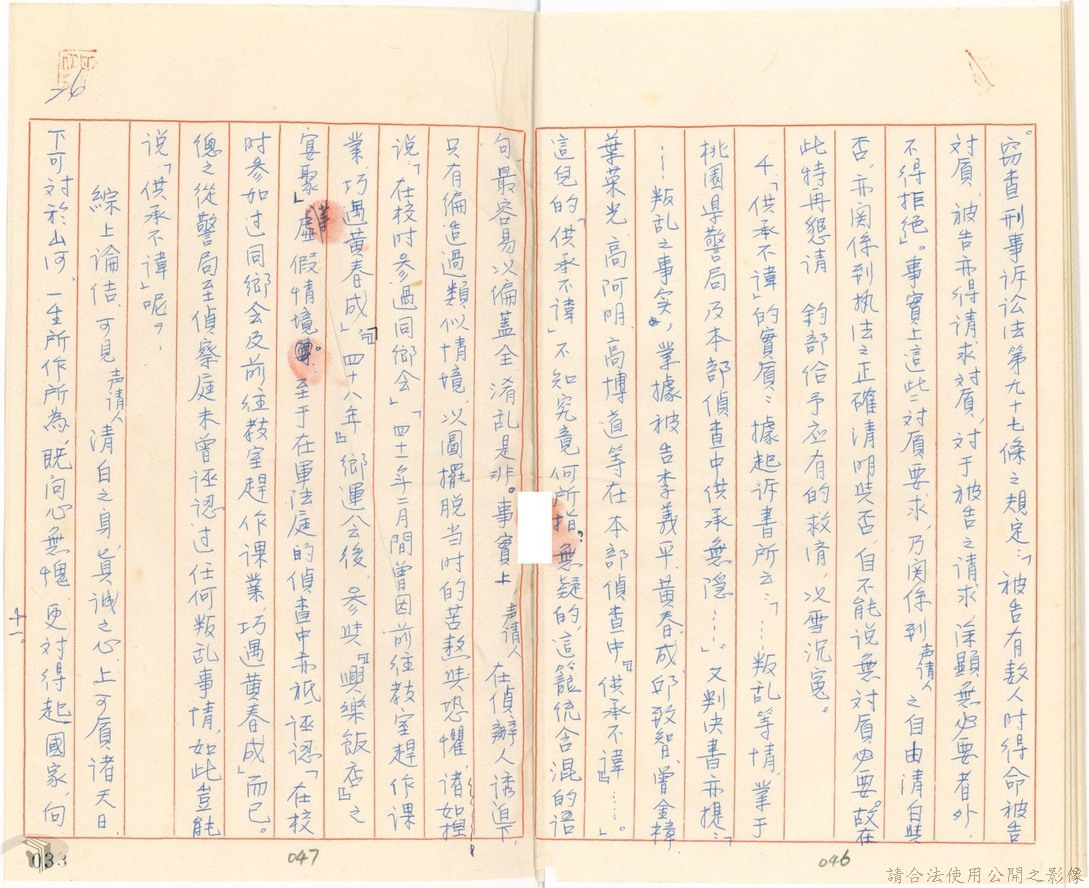 。窃查刑事诉讼法第九十七條之規定：「被告有数人时得命被告
对质，被告亦得请求对质，对于被告之请求，除顯無必要者外，
不得拒絶」。事實上這些对质要求，乃関係到声请人之自由清白與
否，亦関係到执法之正確清明與否，自不能说無对质必要。故在
此特再懇请　鈞部给予应有的救濟，以雪沉冤。
4.「供承不諱」的實质：據起诉書所云：「……叛乱等情，業于
桃園县警局及本部偵查中供承無隐……」。又判决書亦提：「
…叛乱之事实，業據被告李義平、黄春成、邱致智、曾金樟、
葉菜光、高阿明、高博道等在本部偵查中『供承不諱』……。」
這兒的「供承不諱」不知究竟何所指？無疑的，這籠统含混的语
句，最容易以偏蓋全淆乱是非。事實上，声请人在偵辦人诱迫下，
只有偏造過類似情境，以圖擺脱当时的苦熬與恐懼，诸如揑
说：「在校时参過同鄉会」「四十一年二月間曾因前往教室趕作课
業，巧遇黄春成」，「四十八年『鄉運会後参與『興樂飯店』之
宴聚」等虚假情境。至于在軍法庭的偵查中亦衹诬認「在校
时参加过同鄉会及前往教室趕作课業，巧遇黄春成」而已。
總之從警局至偵察庭未曾诬認过任何叛乱事情，如此豈能
说「供承不諱」呢？，
綜上論结，可見声请人清白之身，真誠之心，上可质诸天日，
下可对於山河，一生所作所為，既问心無愧，更对得起國家，向
十一。
26
033
047
046
請合法使用公開之影像